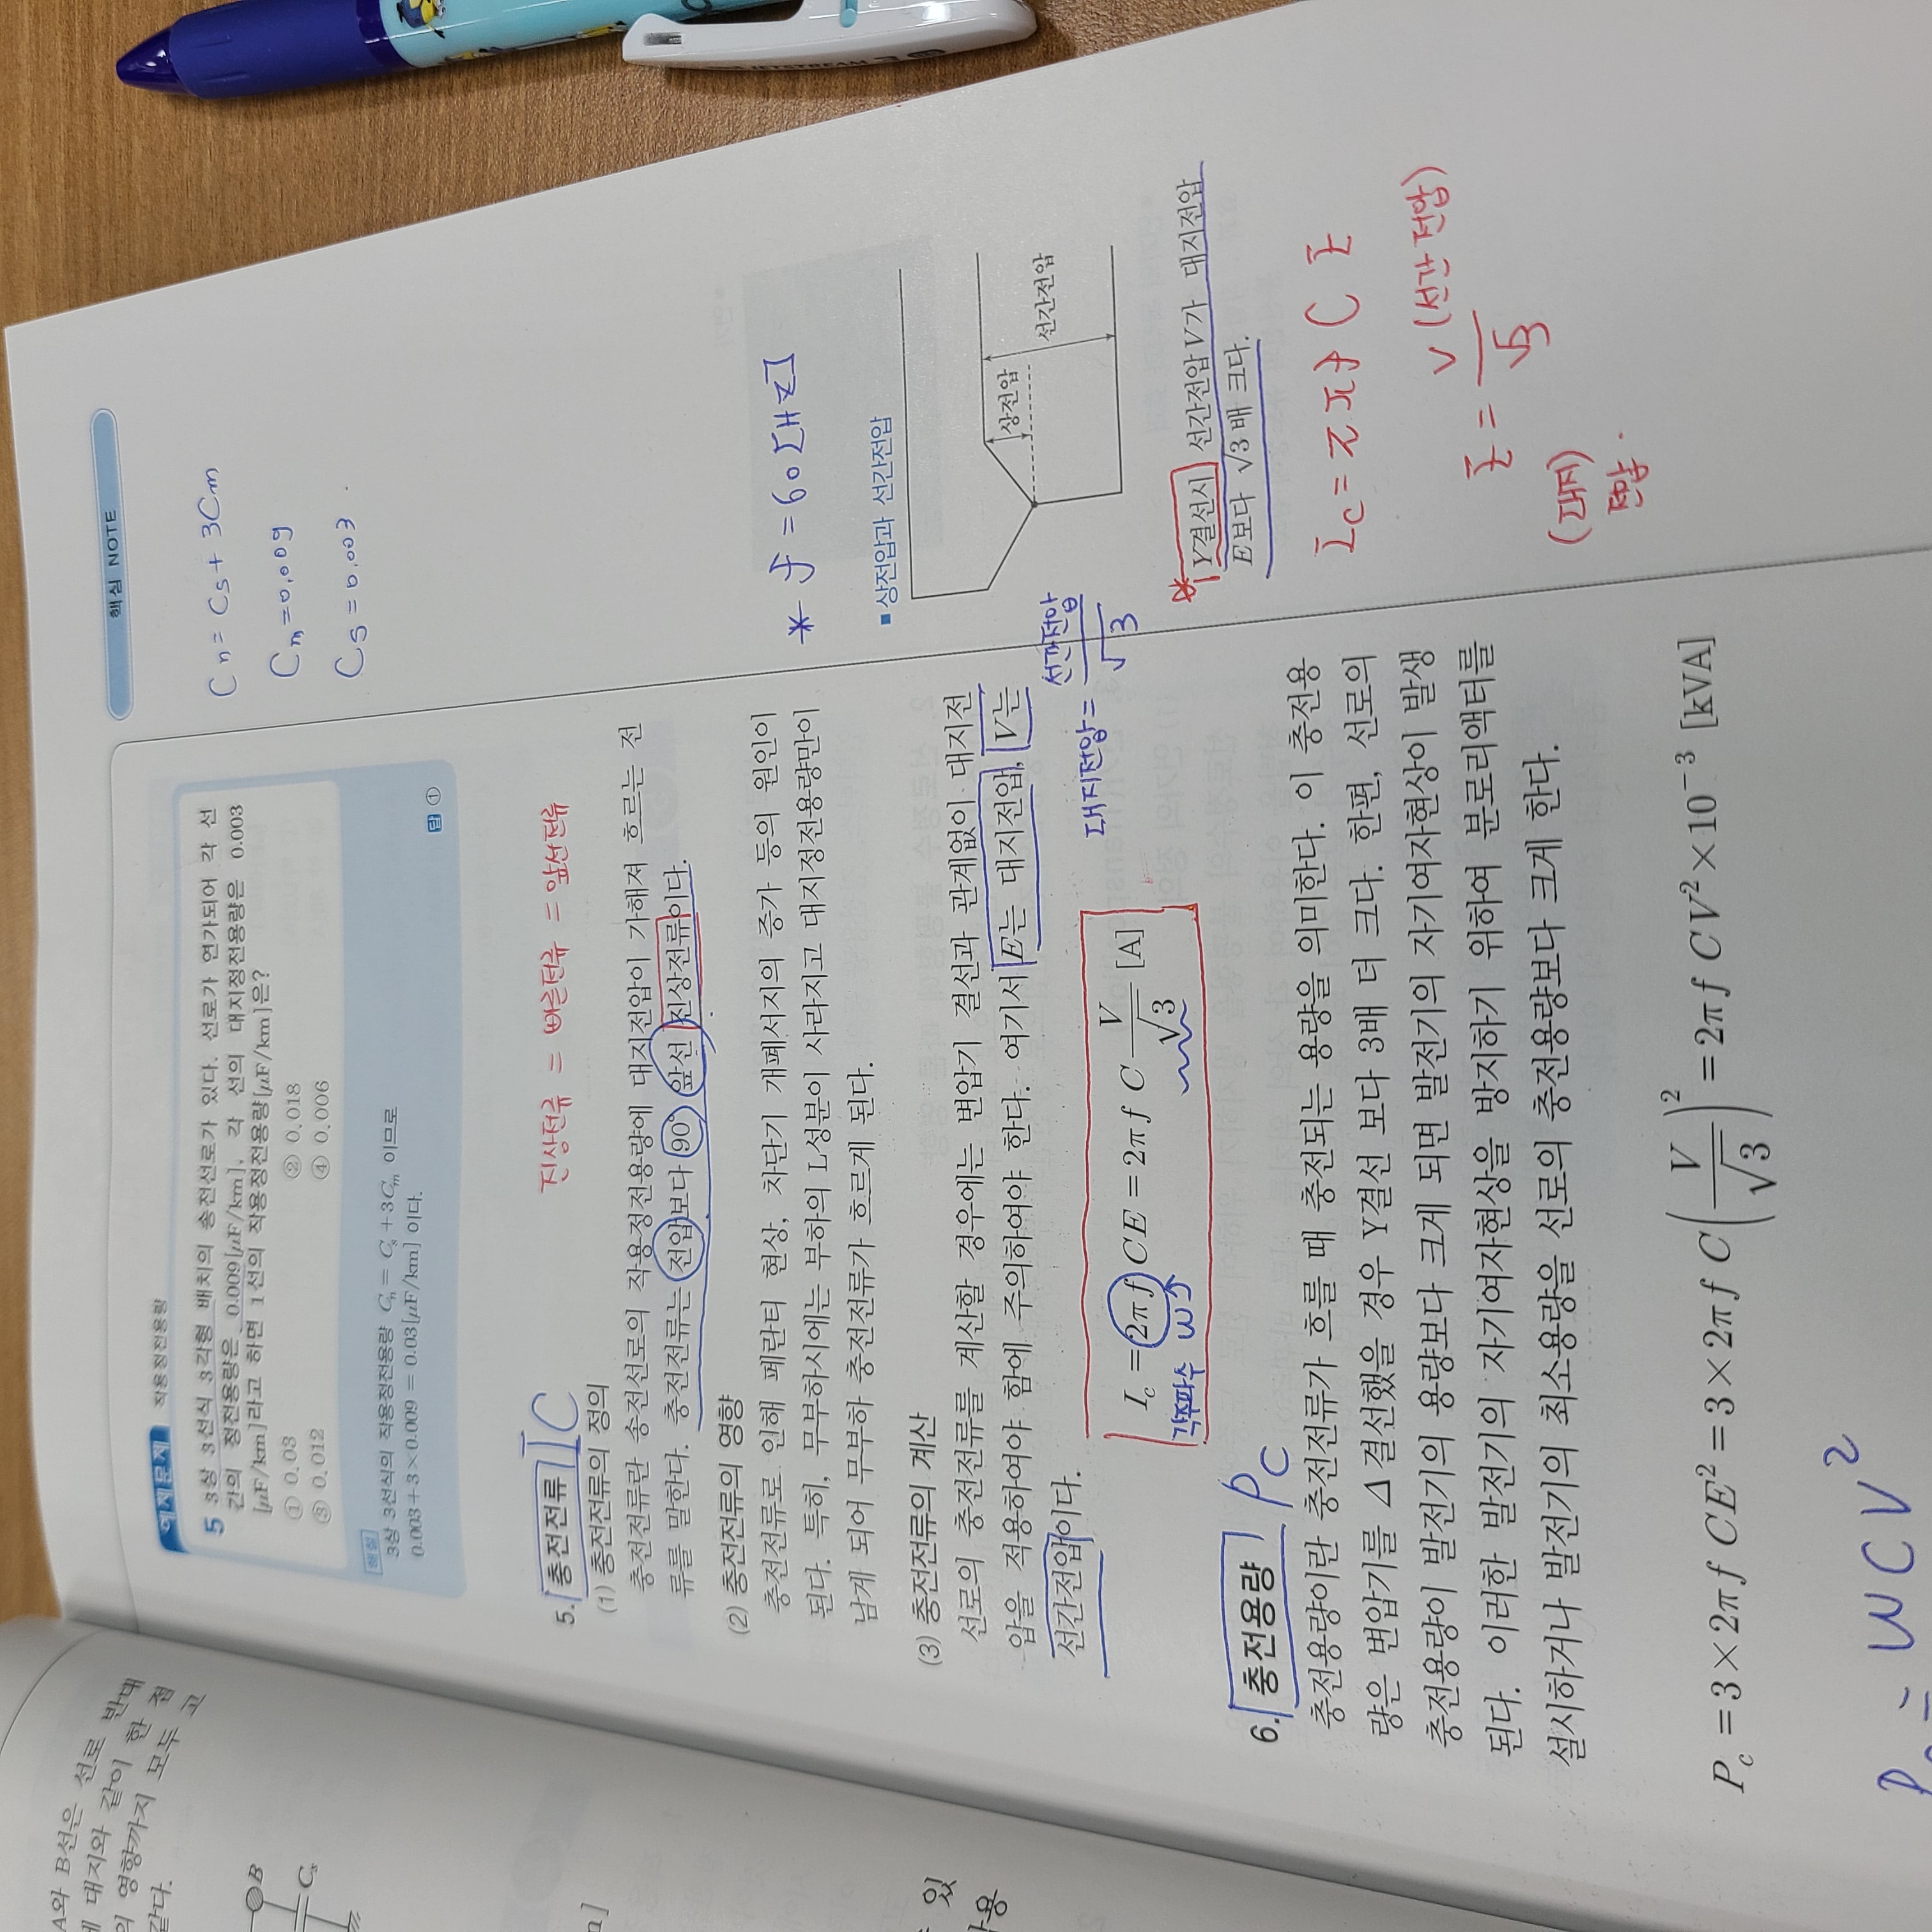 핵심 NOTE
예제문제 작용정전용량
5 3상 3선식 3각형 배치의 송전선로가 있다. 선로가 연가되어 각 선
간의 정전용량은 0.009[μF/km], 각 선의 대지정전용량은 0.003
[μF/km]라고 하면 1선의 작용정전용량[μF/km]은?
① 0.03 ② 0.018
③ 0.012 ④ 0.006
해설
3상 3선식의 작용정전용량 Cₙ = Cₛ + 3Cₘ 이므로
0.003+3×0.009 = 0.03[μF/km] 이다.
답 ①
Cn = Cs + 3Cm
Cm = 0.009
Cs = 0.003
진상전류 = 빠른전류 = 앞선전류
5. 충전전류 IC
(1) 충전전류의 정의
충전전류란 송전선로의 작용정전용량에 대지전압이 가해져 흐르는 전
류를 말한다. 충전전류는 전압보다 90° 앞선 진상전류이다.
(2) 충전전류의 영향
충전전류로 인해 페란티 현상, 차단기 개폐서지의 증가 등의 원인이
된다. 특히, 무부하시에는 부하의 L성분이 사라지고 대지정전용량만이
남게 되어 무부하 충전전류가 흐르게 된다.
(3) 충전전류의 계산
선로의 충전전류를 계산할 경우에는 변압기 결선과 관계없이 대지전
압을 적용하여야 함에 주의하여야 한다. 여기서 E는 대지전압, V는
선간전압이다.
대지전압 = 선간전압/√3
I_c = 2πf CE = 2πf C V/√3 [A]
각주파수 w
* f = 60[Hz]
■ 상전압과 선간전압
상전압
선간전압
* Y결선시 선간전압 V가 대지전압
E보다 √3배 크다.
Ic = 2πf C E
E = V(선간전압)/√3
(대지)
전압.
6. 충전용량 Pc
충전용량이란 충전전류가 흐를 때 충전되는 용량을 의미한다. 이 충전용
량은 변압기를 Δ결선했을 경우 Y결선 보다 3배 더 크다. 한편, 선로의
충전용량이 발전기의 용량보다 크게 되면 발전기의 자기여자현상이 발생
된다. 이러한 발전기의 자기여자현상을 방지하기 위하여 분로리액터를
설시하거나 발전기의 최소용량을 선로의 충전용량보다 크게 한다.
P_c = 3×2πf CE² = 3×2πf C(V/√3)² = 2πf CV²×10⁻³ [kVA]
= WCV²
A와 B선은 선로 반대
대지와 같이 한 접
의 영향까지 모두 고
같다.
B
Cₛ
있